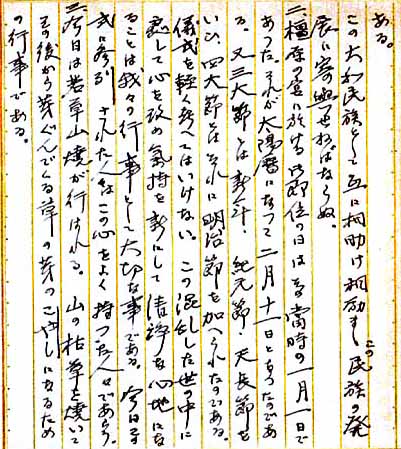 ある。
この大和民族として互に相助け相励まし この民族の発
展に寄興せねばならぬ。
二、橿原の宮に於ける御即位の日はその當時の一月一日で
あつた。それが太陽暦になつて二月十一日となつたのであ
る。又三大節とは新年、紀元節・天長節を
いひ、四大節とはそれに明治節を加へられたのである。
儀式を軽く考へてはいけない。この混乱した世の中に
處して心を改め氣持を新にして清浄な心地にな
ることは我々の行事として大切な事である。今日の
式に参列された人々はこの心をよく持つた人々であらう。
三、今日は若草山焼が行はれる。山の枯草を焼いて
その後から芽ぐんでくる草の芽のこやしになるため
の行事である。